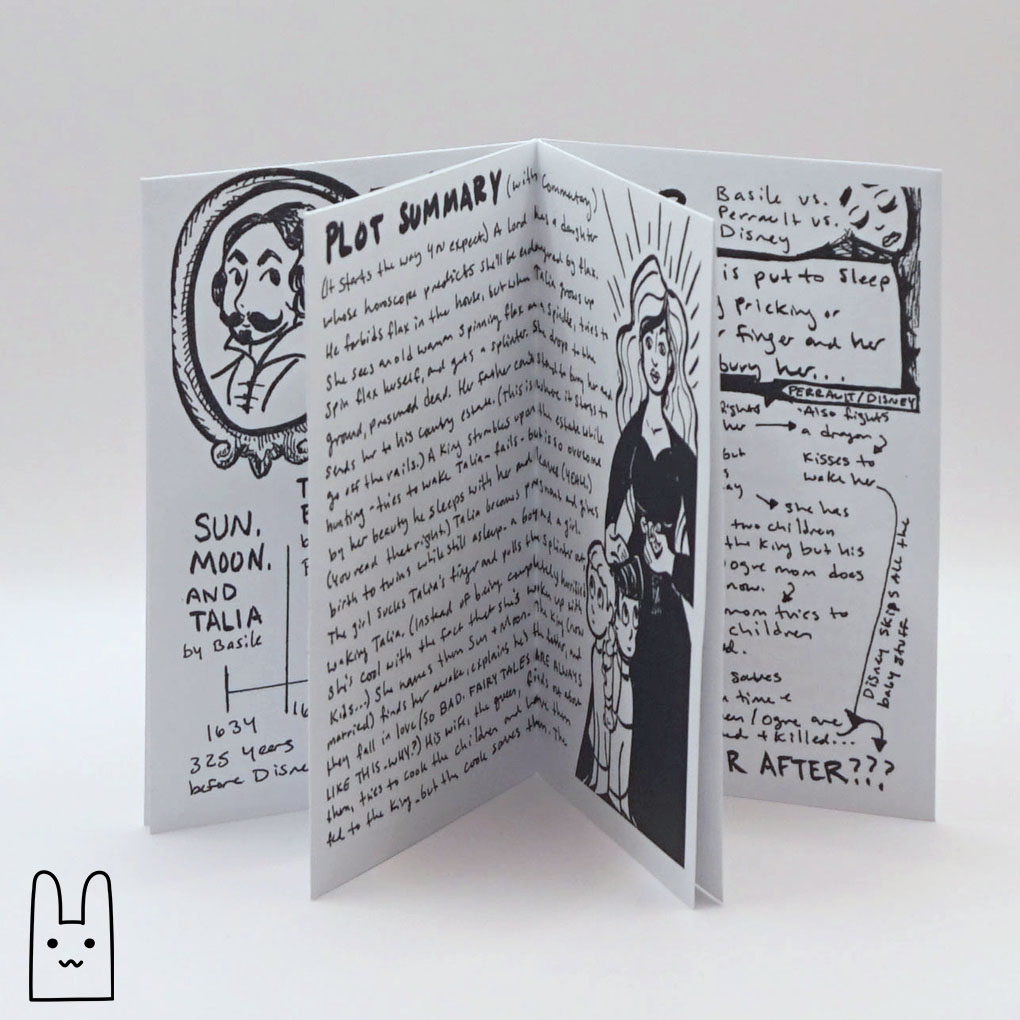 SUN,
MOON,
AND
TALIA
by Basile
1634
325 years
before Disne
T
PLOT SUMMARY (with commentary)
(It starts the way you expect) A Lord has a daughter
whose horoscope predicts she'll be endangered by flax.
He forbids flax in the house, but when Talia grows up
she sees an old woman spinning flax on a spindle, tries to
spin flax herself, and gets a splinter. She drops to the
ground, presumed dead. Her father can't stand to bury her and
sends her to his country estate. (This is where it starts to
go off the rails.) A King stumbles upon the estate while
hunting - tries to wake Talia - fails - but is so overcome
by her beauty he sleeps with her and leaves (YEAH.)
(You read that right.) Talia becomes pregnant and gives
birth to twins while still asleep - a boy and a girl.
The girl sucks Talia's finger and pulls the splinter out
waking Talia. (Instead of being completely horrified
she's cool with the fact that she's woken up with
kids...) She names them Sun + Moon. The King (now
married) finds her awake, explains he's the father, and
they fall in love (SO BAD. FAIRY TALES ARE ALWAYS
LIKE THIS - WHY?) His wife, the queen, finds out about
them, tries to cook the children and have them
fed to the King - but the cook saves them. The
Basile vs.
Perrault vs.
Disney
is put to sleep
pricking or
finger and her
bury her...
PERRAULT/DISNEY
her
Also fights
a dragon
kisses to
wake her
but
she has
two children
the King but his
ogre mom does
now.
mom tries to
children
saves
time +
/ogre are
+ killed...
DISNEY SKIPS ALL THE
baby stuff
R AFTER???